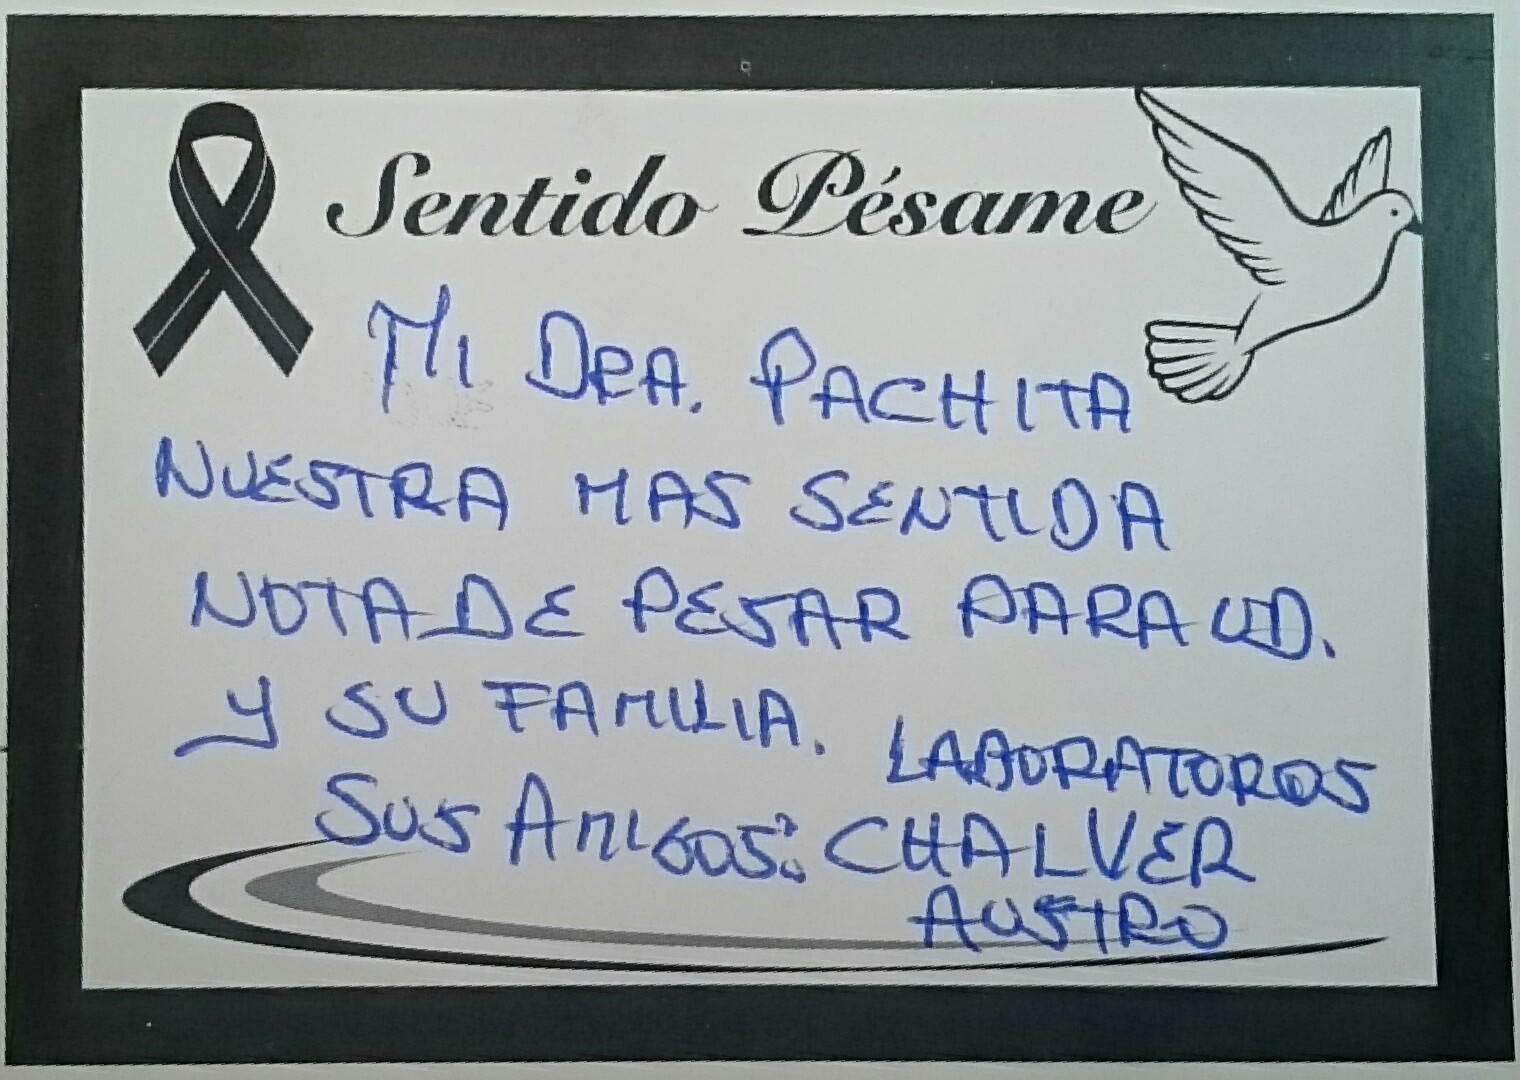 Sentido Pésame
MI DRA. PACHITA
NUESTRA MAS SENTIDA
NOTA DE PESAR PARA UD.
Y SU FAMILIA.
LABORATOROS
SUS AMIGOS: CHALVER
AUSTRO